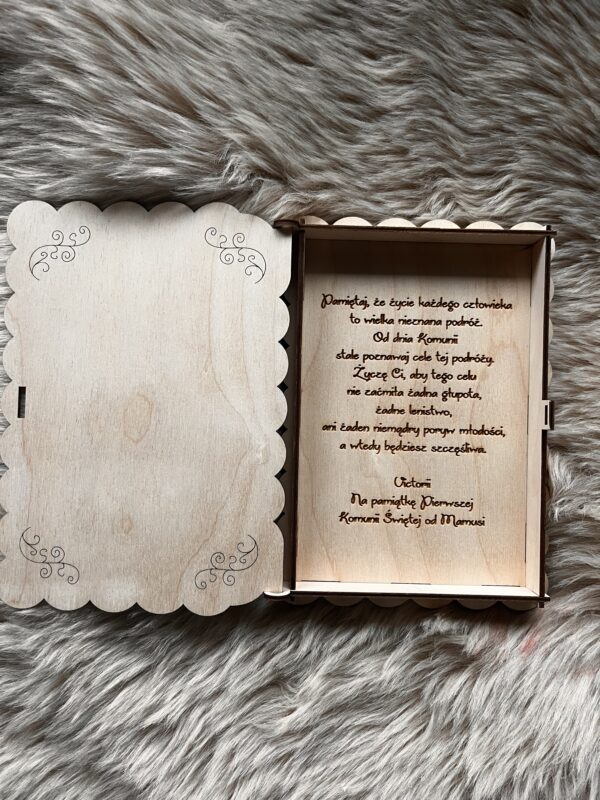 Pamiętaj, że życie każdego człowieka
to wielka nieznana podróż.
Od dnia Komunii
stale poznawaj cele tej podróży.
Życzę Ci, aby tego celu
nie zaćmiła żadna głupota,
żadne lenistwo,
ani żaden niemądry poryw młodości,
a wtedy będziesz szczęśliwa.
Victorii
Na pamiątkę Pierwszej
Komunii Świętej od Mamusi